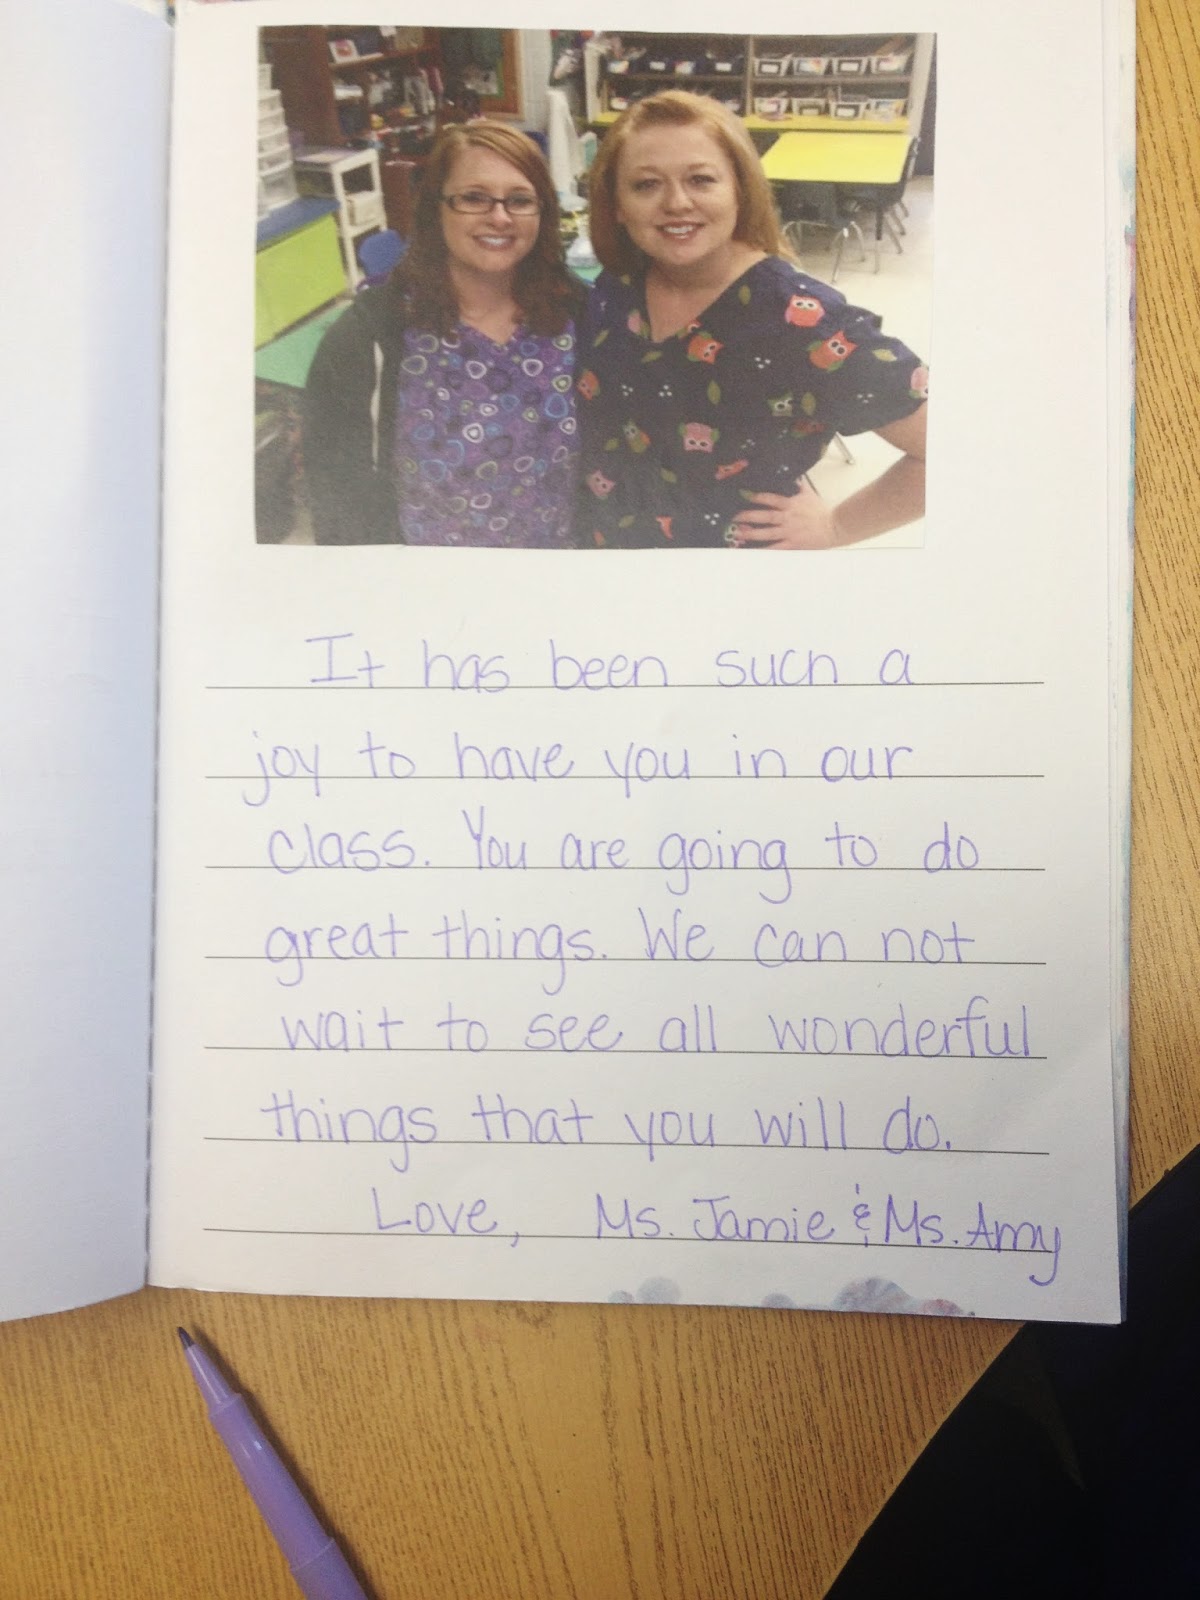 It has been such a
joy to have you in our
class. You are going to do
great things. We can not
wait to see all wonderful
things that you will do.
Love, Ms. Jamie & Ms. Amy